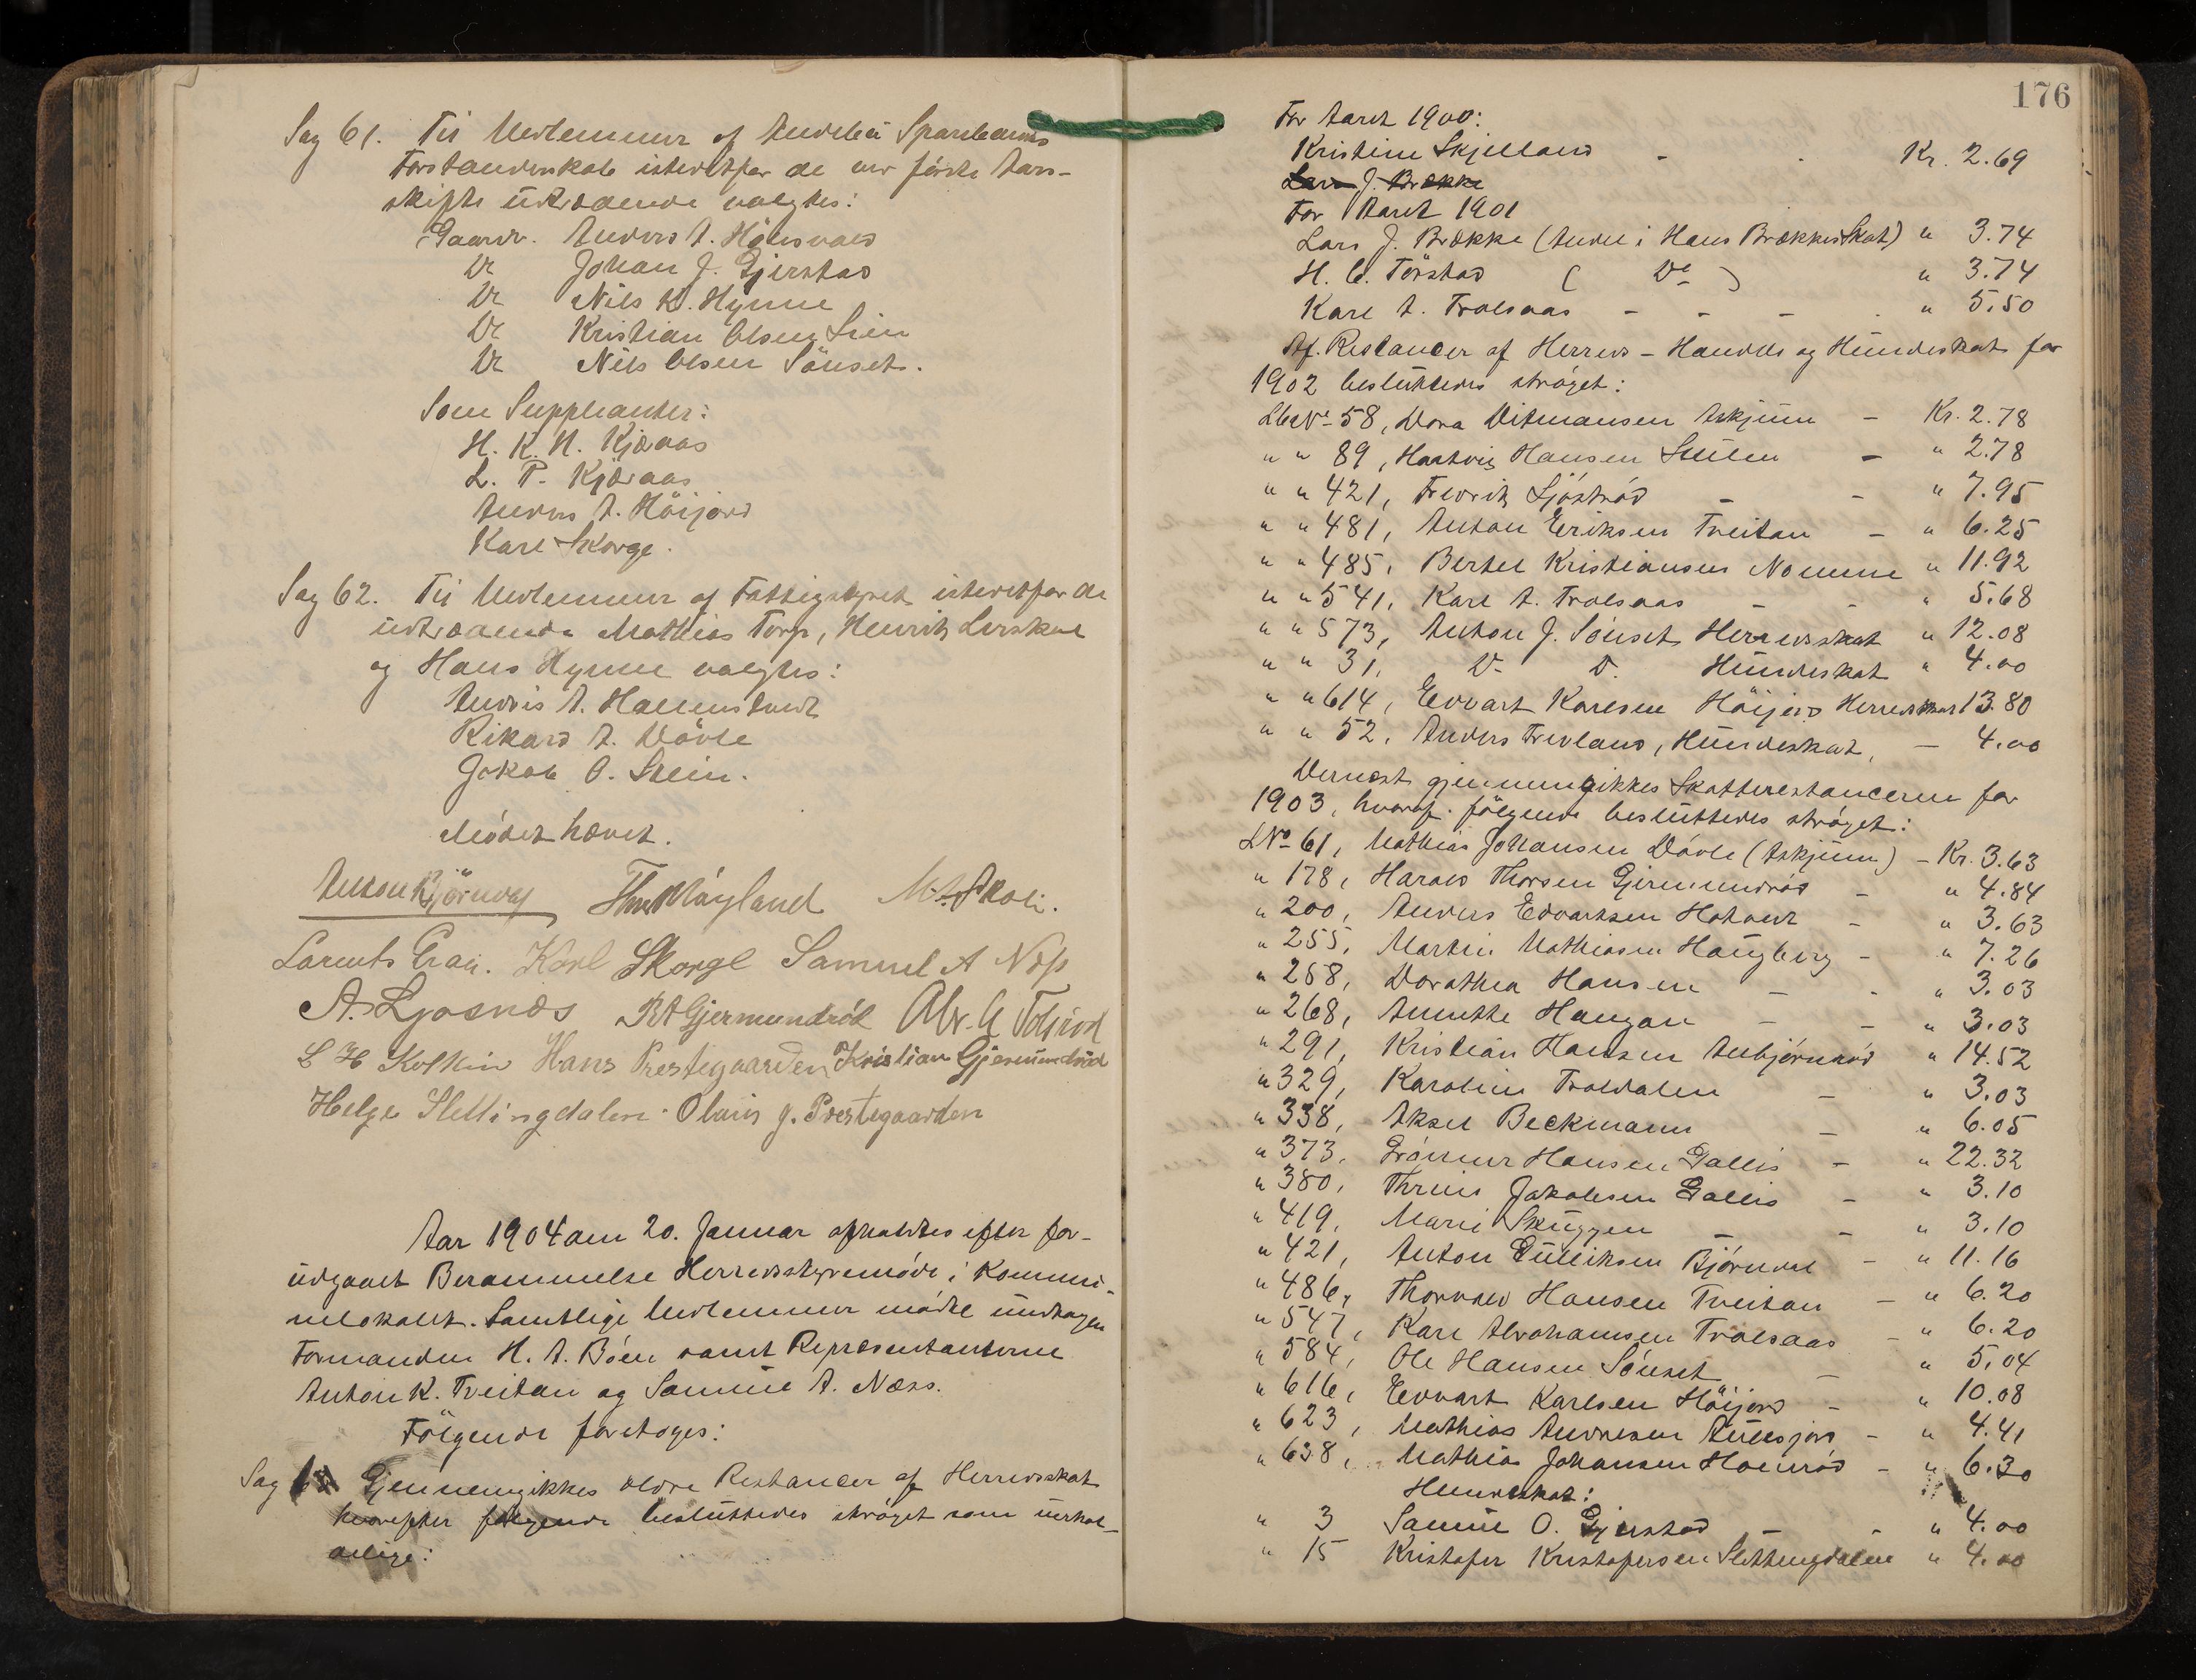 Sag 61. Til Medlemmer af Andebu Sparebanks
Forstanderskab istedetfor de ved første Aars-
skifte udtrædende valgtes:
Gaardr. Anders A. Hønsvald
Do Johan J. Gjerstad
Do Nils K. Hynne
Do Kristian Olsen Lien
Do Nils Olsen Sønset.
Som Suppleanter:
H. K. N. Kjæraas
L. P. Kjæraas
Anders A. Höijord
Karl Skorge.
Sag 62. Til Medlemmer af Fattigstyret istedetfor de
udtrædende Mathias Torp, Henrik Lerskal
og Hans Hynne valgtes:
Andreis A. Hallenstvedt
Rikard A. Dövle
Jakob O. Stein.
Mødet hævet.
Anton Bjørndal Thv. Møyland M. A. Skoli.
Laurits Grau. Karl Skorge Samuel A Næss
A. Ljosnæs R A Gjermundrød Abr. A Tolsrød
L H Kolkin Hans Prestegaarden Kristian Gjermundrød
Helge Slettingdalen. Olaus J. Prestegaarden
Aar 1904 den 20. Januar afholdtes efter for-
udgaaet Berammelse Herredsstyremøde i Kommu-
nelokalet. Samtlige Medlemmer mødte undtagen
Formanden H. A. Bøen samt Repræsentanterne
Anton K. Treidan og Samuel A. Næss.
Følgende foretoges:
Sag Gjennemgikkes ældre Restancer af Herredsskat
hvorefter følgende besluttedes strøget som uerhol-
delige:
176
For Aaret 1900:
Kristine Skjelland - Kr. 2.69
Lars J. Brække
For Aaret 1901
Lars J. Brække (Andel i Hans Brækkes Skat) " 3.74
H. C. Torstad ( Do ) " 3.74
Karl A. Trolsaas - - - " 5.50
Af Restancer af Herreds- Handels og Hundeskat for
1902 besluttedes strøget:
Lbe No 58, Dora Ditmansen Askjum - Kr. 2.78
" " 89, Hartvig Hansen Stulen - " 2.78
" " 421, Fredrik Sjøstrød - - " 7.95
" " 481, Anton Eriksen Treidan - " 6.25
" " 485, Bertel Kristiansen Nomme " 11.92
" " 541, Karl A. Trolsaas - - " 5.68
" " 573, Anton J. Sønset Herredsskat " 12.08
" " 31, Do Do Hundeskat " 4.00
" " 614, Edvart Karlsen Höijord Herredsskat 13.80
" " 52, Anders Trevland, Hundeskat, - 4.00
Dernæst gjennemgikkes Skatterestancerne for
1903, hvoraf følgende besluttedes strøget:
LNo 61, Mathias Johansen Døvle (Askjum) - Kr. 3.63
" 178, Harald Thorsen Gjermundrød - " 4.84
" 200, Anders Edvartsen Hotvedt - " 3.63
" 255, Martin Mathiasen Haugberg - " 7.26
" 258, Dorathea Hansen - - " 3.03
" 268, Annette Haugan - - " 3.03
" 291, Kristian Hansen Anbjørnrød " 14.52
" 329, Karoline Troldalen - " 3.03
" 338, Aksel Beckmann - " 6.05
" 373, Grønner Hansen Gallis - " 22.32
" 380, Thrine Jakobsen Gallis - " 3.10
" 419, Marie Skuggen - - " 3.10
" 421, Anton Gulliksen Bjørndal - " 11.16
" 486, Thorvald Hansen Treidan - " 6.20
" 547, Karl Abrahamsen Trolsaas - " 6.20
" 584, Ole Hansen Sønset - " 5.04
" 616, Edvart Karlsen Höijord - " 10.08
" 623, Mathias Andresen - " 4.41
" 638, Mathias Johansen - " 6.30
Hundeskat:
" 3 Samuel O. Gjerstad - - " 4.00
" 15 Kristofer Kristofersen Slettingdalen " 4.00